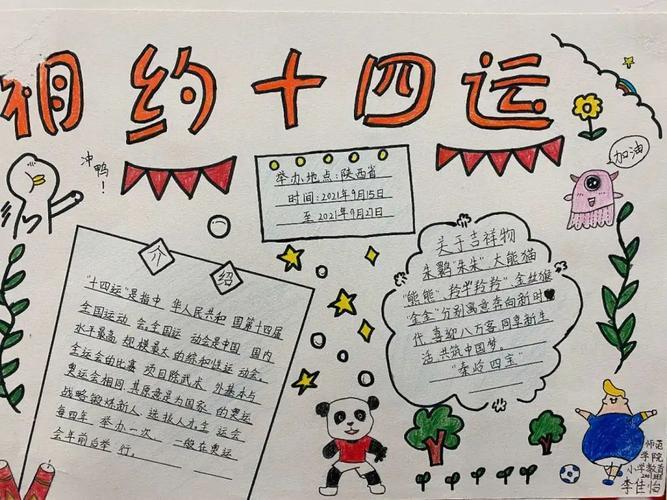 相约十四运
冲鸭!
加油
举办地点:陕西省
时间:2021年9月15日
至2021年9月27日
介绍
"十四运"是指中 华人民共和 国第十四届
全国运动 会。全国运 动会是中国 国内
水平最高 规模最大 的综和性运 动会。
全运会的比赛 项目除武术 外基本与
奥运会相同 其原意是为国家 的奥运
战略锻炼新人 选拔人才全 运会
每四年 举办一次, 一般在奥运
会年前后举 行。
关于吉祥物
朱鹮"朱朱"大熊猫
"熊熊"、羚羊羚羚"、金丝猴
"金金"分别寓意奔向新时
代、喜迎八方客、同享新生
活 共筑中国梦。
"秦岭四宝"
师范
学院
小学教育
李佳怡